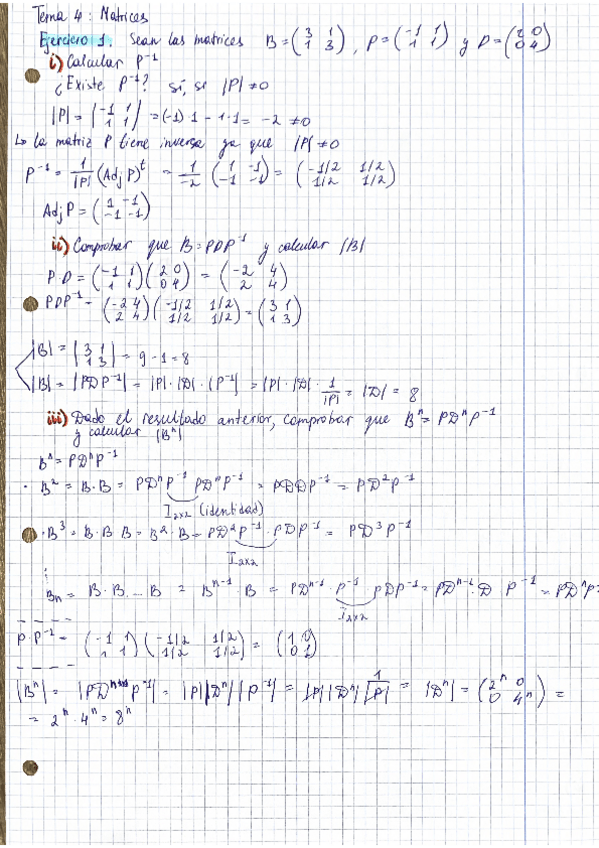 Tema 4: Matrices
Ejercicio 1. Sean las matrices B = (3 1 / 1 3), P = (-1 1 / 1 1) y D = (2 0 / 0 4)
i) Calcular P⁻¹
¿Existe P⁻¹? sí, si |P| ≠ 0
|P| = |-1 1 / 1 1| = (-1)·1 - 1·1 = -2 ≠ 0
↳ la matriz P tiene inversa ya que |P| ≠ 0
P⁻¹ = 1/|P| (Adj P)ᵗ = 1/-2 (1 -1 / -1 -1) = (-1/2 1/2 / 1/2 1/2)
Adj P = (1 -1 / -1 -1)
ii) Comprobar que B = PDP⁻¹ y calcular |B|
P·D = (-1 1 / 1 1)(2 0 / 0 4) = (-2 4 / 2 4)
PDP⁻¹ = (-2 4 / 2 4)(-1/2 1/2 / 1/2 1/2) = (3 1 / 1 3)
|B| = |3 1 / 1 3| = 9 - 1 = 8
|B| = |PDP⁻¹| = |P|·|D|·|P⁻¹| = |P|·|D|·1/|P| = |D| = 8
iii) Dado el resultado anterior, comprobar que Bⁿ = PDⁿP⁻¹
y calcular |Bⁿ|
Bⁿ = PDⁿP⁻¹
· B² = B·B = PDⁿP⁻¹ PDⁿP⁻¹ = PDDP⁻¹ = PD²P⁻¹
I₂ₓ₂ (identidad)
· B³ = B·B·B = B²·B = PD²P⁻¹·PDP⁻¹ = PD³P⁻¹
I₂ₓ₂
⋮
Bn = B·B...B = Bⁿ⁻¹·B = PDⁿ⁻¹·P⁻¹ PDP⁻¹ = PDⁿ⁻¹·D P⁻¹ = PDⁿP⁻
I₂ₓ₂
P·P⁻¹ = (-1 1 / 1 1)(-1/2 1/2 / 1/2 1/2) = (1 0 / 0 1)
|Bⁿ| = |PDⁿP⁻¹| = |P||Dⁿ||P⁻¹| = |P||Dⁿ| 1/|P| = |Dⁿ| = (2ⁿ 0 / 0 4ⁿ) =
= 2ⁿ·4ⁿ = 8ⁿ